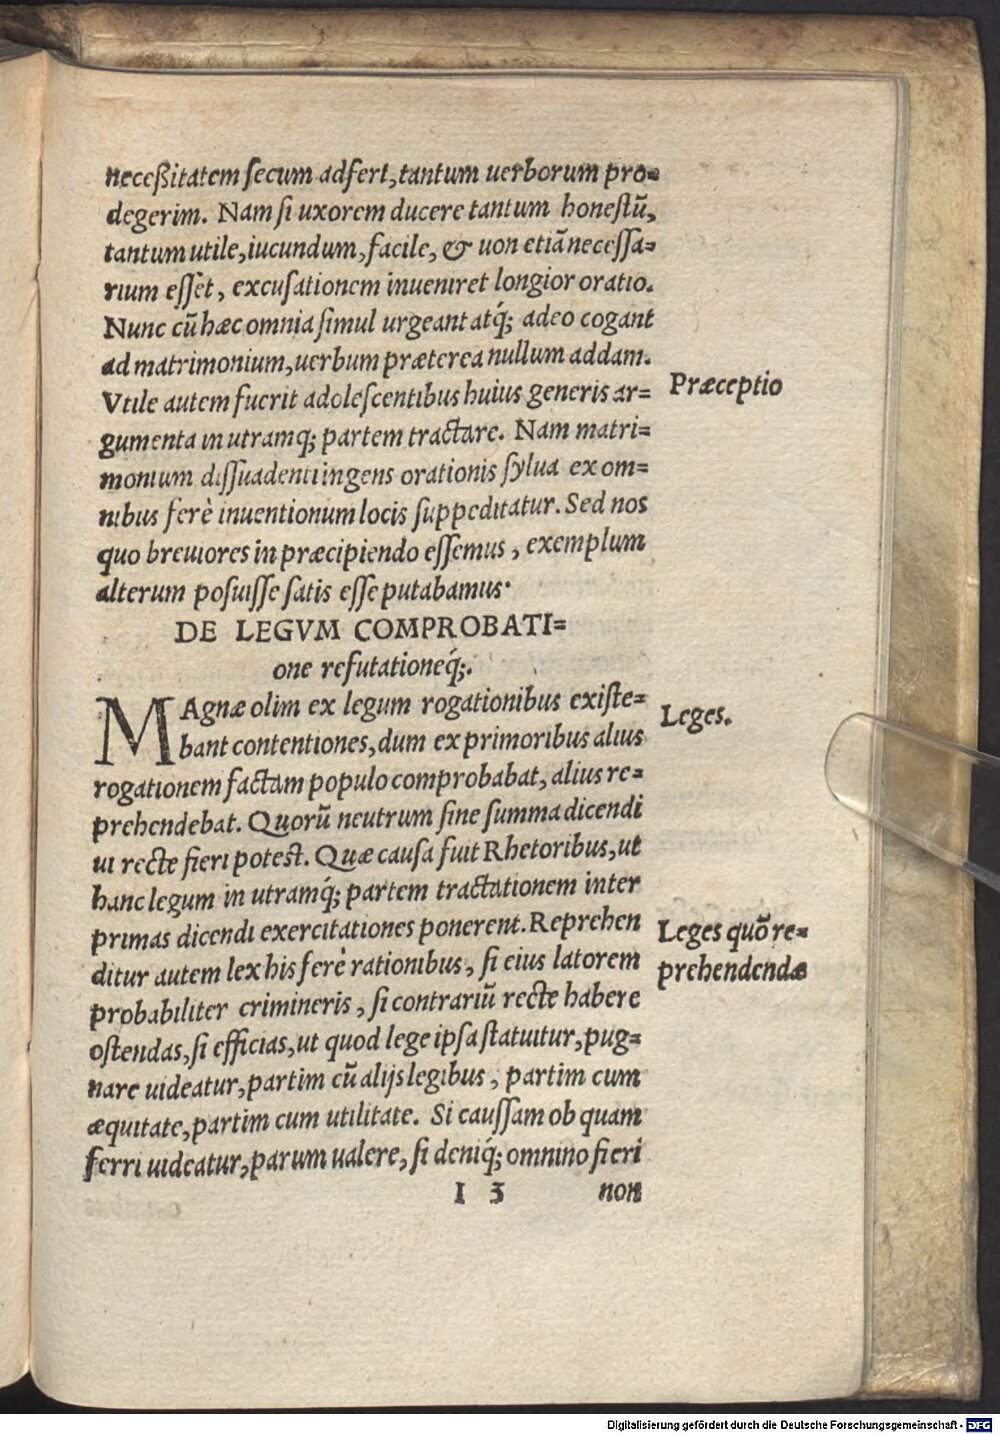 neceßitatem secum adfert, tantum uerborum pro=
degerim. Nam si uxorem ducere tantum honestũ,
tantum utile, iucundum, facile, & uon etiã necessa=
rium esset, excusationem inueniret longior oratio.
Nunc cũ hæc omnia simul urgeant atq́; adeo cogant
ad matrimonium, uerbum præterea nullum addam.
Vtile autem fuerit adolescentibus huius generis ar=
Præceptio
gumenta in utramq; partem tractare. Nam matri=
monium dissuadenti ingens orationis sylua ex om=
nibus ferè inuentionum locis suppeditatur. Sed nos
quo breuiores in præcipiendo essemus, exemplum
alterum posuisse satis esse putabamus.
DE LEGVM COMPROBATI=
one refutationeq́;.
MAgnæ olim ex legum rogationibus existe=
Leges.
bant contentiones, dum ex primoribus alius
rogationem factam populo comprobabat, alius re=
prehendebat. Quorũ neutrum sine summa dicendi
ui recte fieri potest. Quæ causa fuit Rhetoribus, ut
hanc legum in utramq́; partem tractationem inter
primas dicendi exercitationes ponerent. Reprehen
Leges quõ re=
ditur autem lex his ferè rationibus, si eius latorem
prehendendæ
probabiliter crimineris, si contrariũ recte habere
ostendas, si efficias, ut quod lege ipsa statuitur, pug=
nare uideatur, partim cũ alijs legibus, partim cum
æquitate, partim cum utilitate. Si caussam ob quam
ferri uideatur, parum ualere, si deniq́; omnino fieri
I 3 non
Digitalisierung gefördert durch die Deutsche Forschungsgemeinschaft - DFG